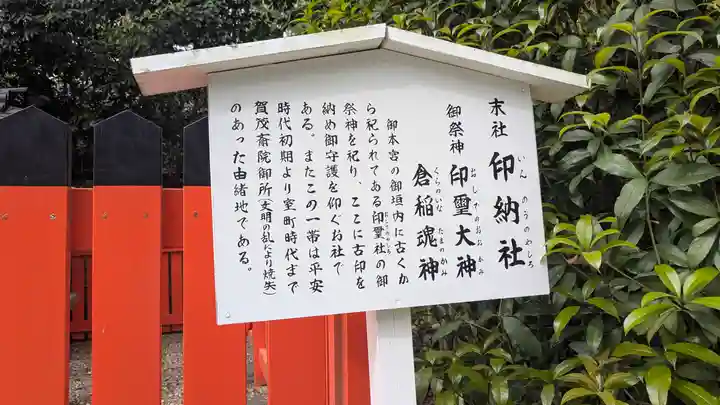 末社 印納社
いんのうのやしろ
御祭神 印璽大神
おしでのおおかみ
倉稲魂神
くらのいなたまのかみ
御本宮の御垣内に古くか
ら祀られてある印璽社の御
祭神を祀り、ここに古印を
納め御守護を仰ぐお社で
ある。またこの一帯は平安
時代初期より室町時代まで
賀茂斎院御所(文明の乱により焼失)
のあった由緒地である。